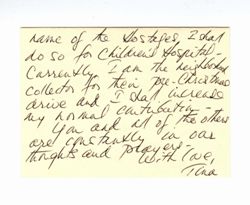 name of the Hostages, I shall
do so for Children's Hospital -
Currently I am the neighborhood
collector for their pre-Christmas
drive and I shall increase
my normal contribution -
You and all of the others
are constantly in our
thoughts and prayers -
With love,
Tina